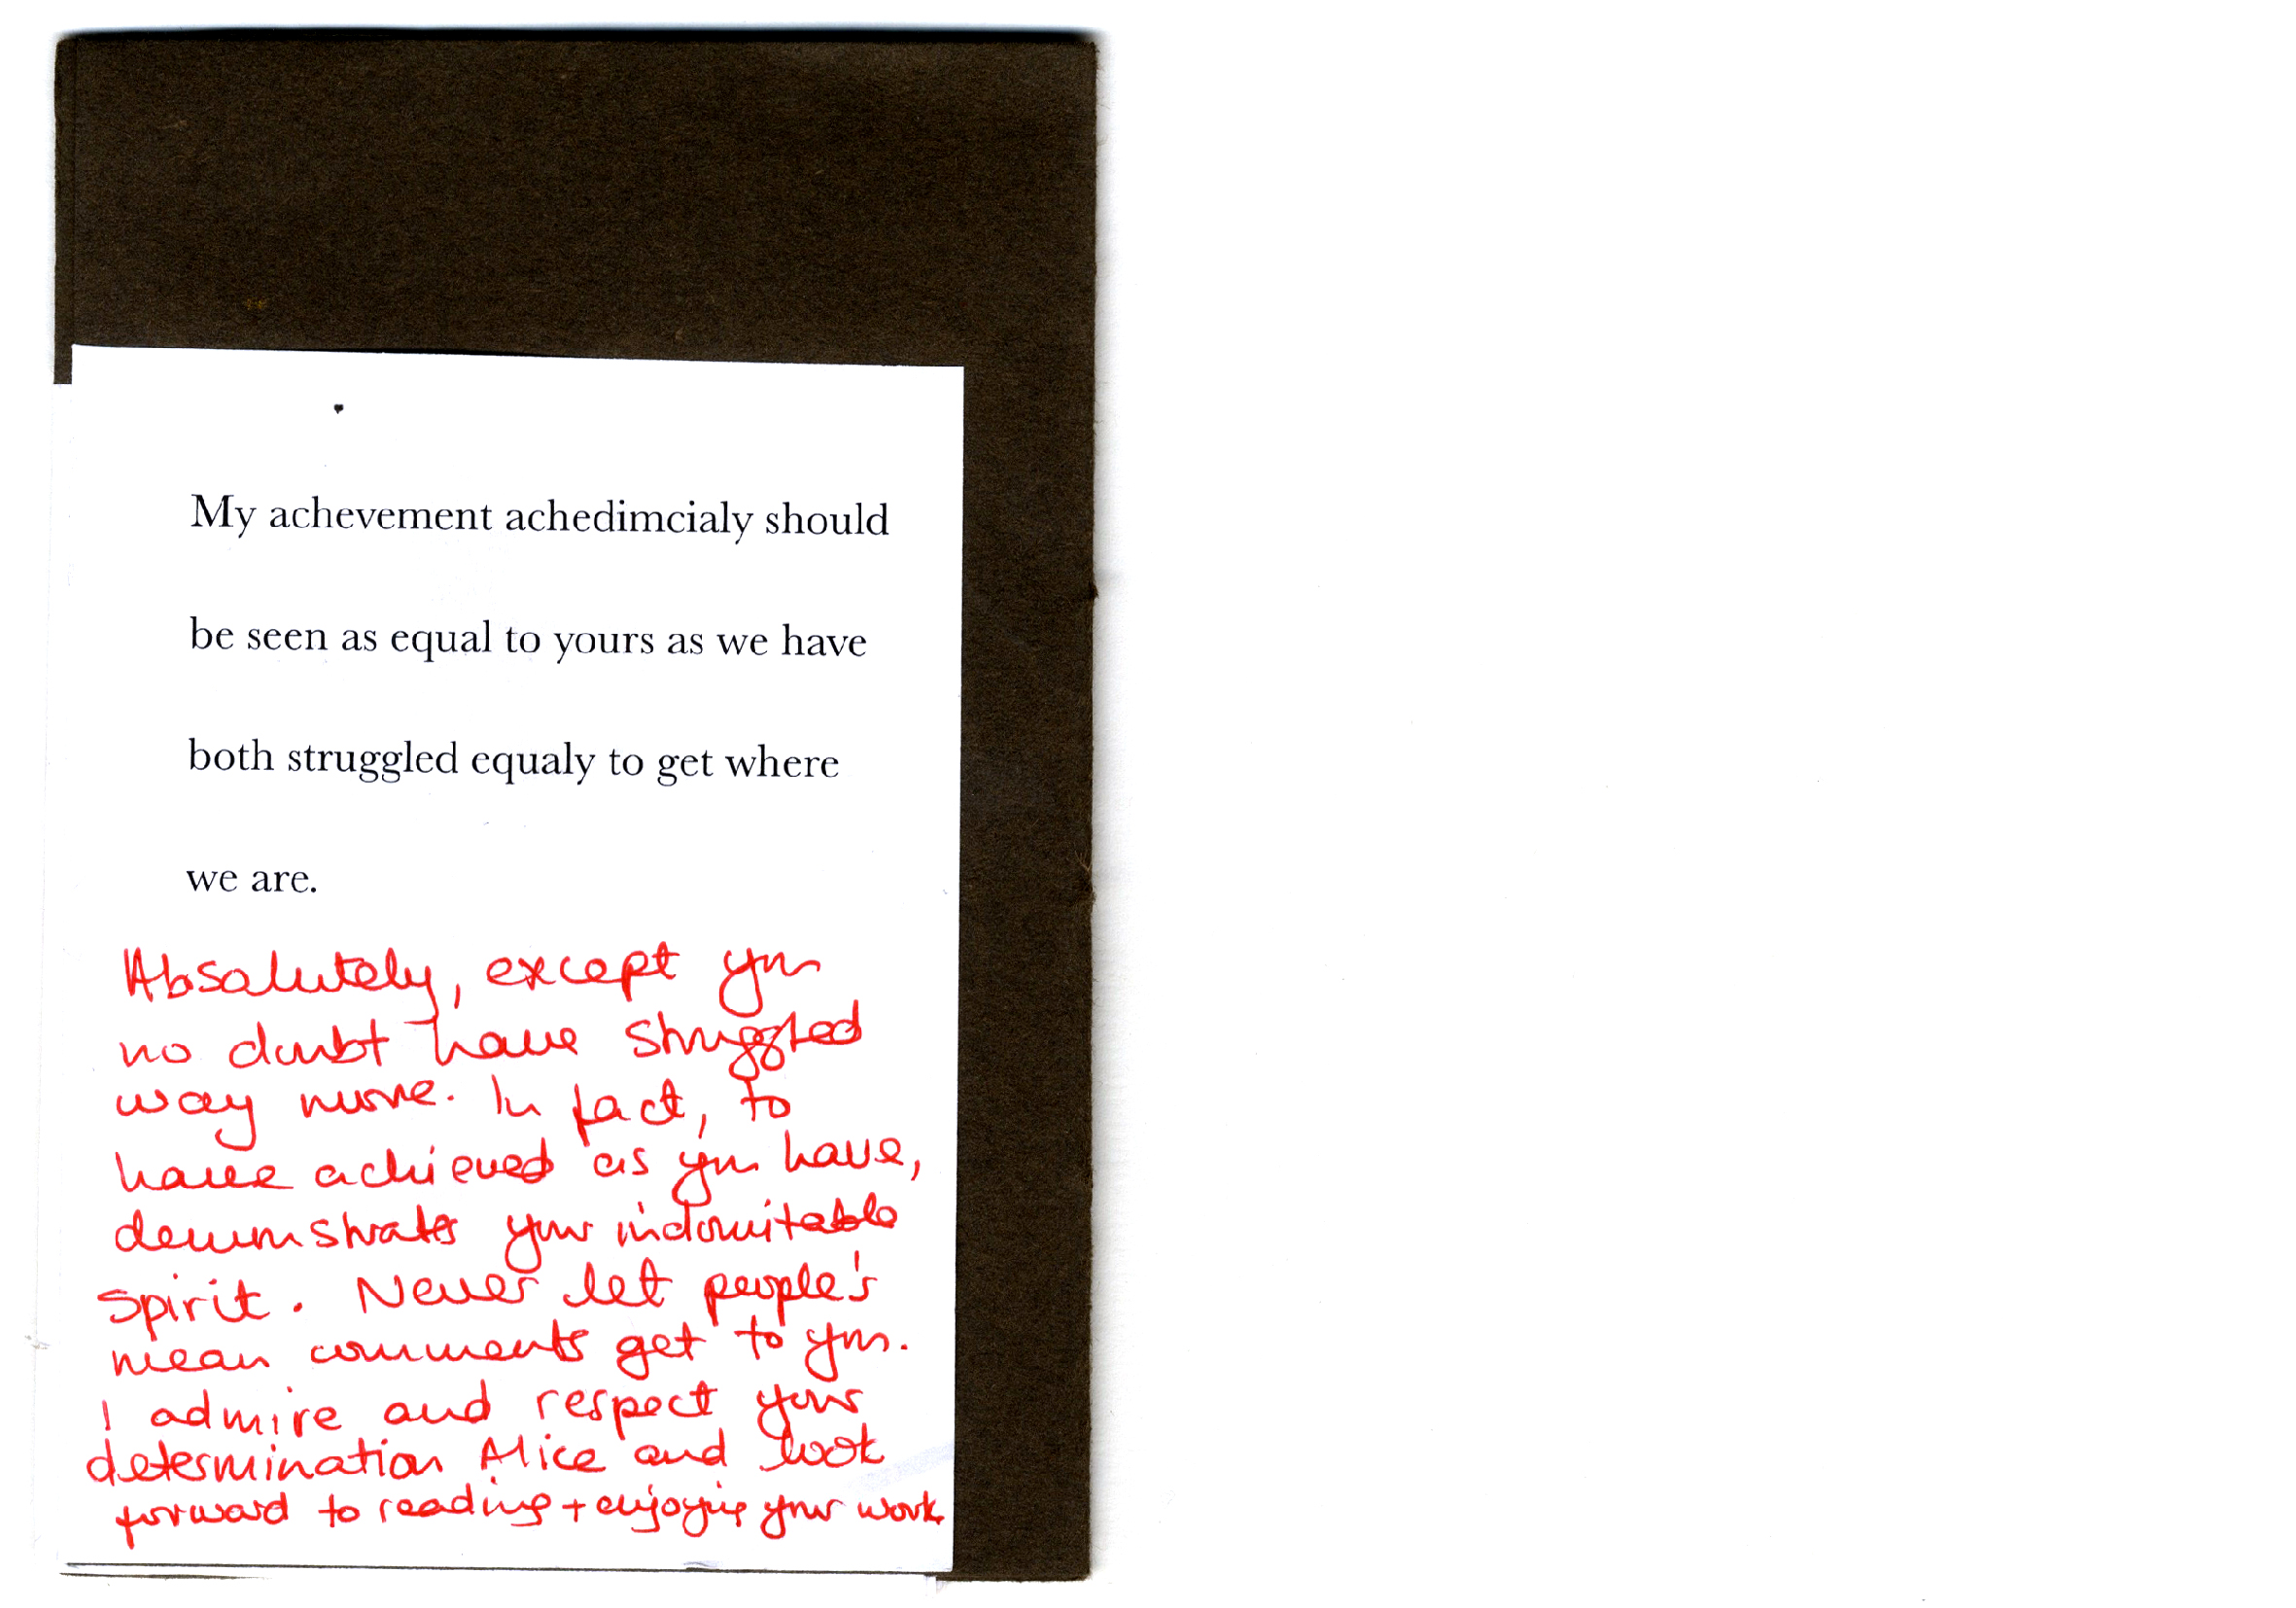 My achevement achedimcialy should
be seen as equal to yours as we have
both struggled equaly to get where
we are.
Absolutely, except you
no doubt have struggled
way more. In fact, to
have achieved as you have,
demonstrates your indomitable
spirit. Never let people's
mean comments get to you.
I admire and respect your
determination Alice and look
forward to reading + enjoying your work